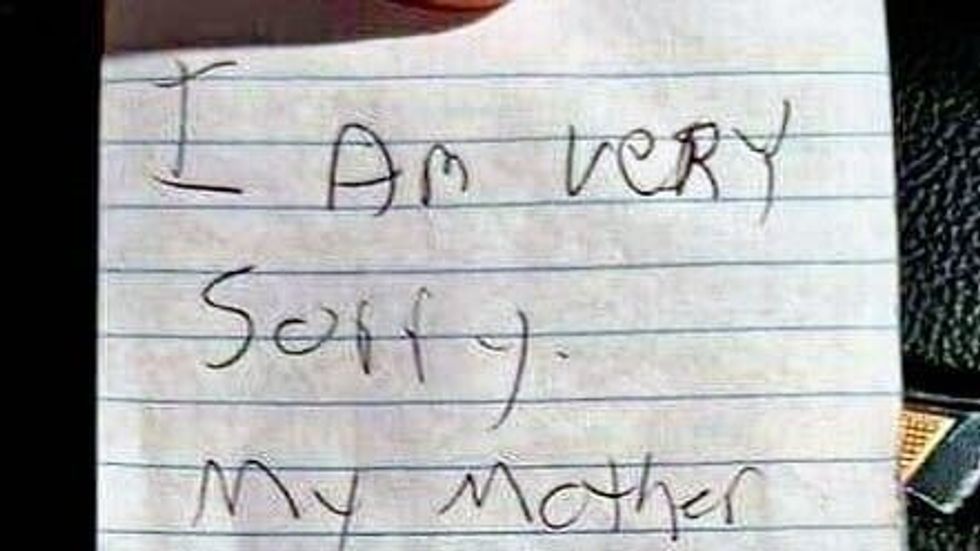 I Am veRY
Sorry.
My Mother